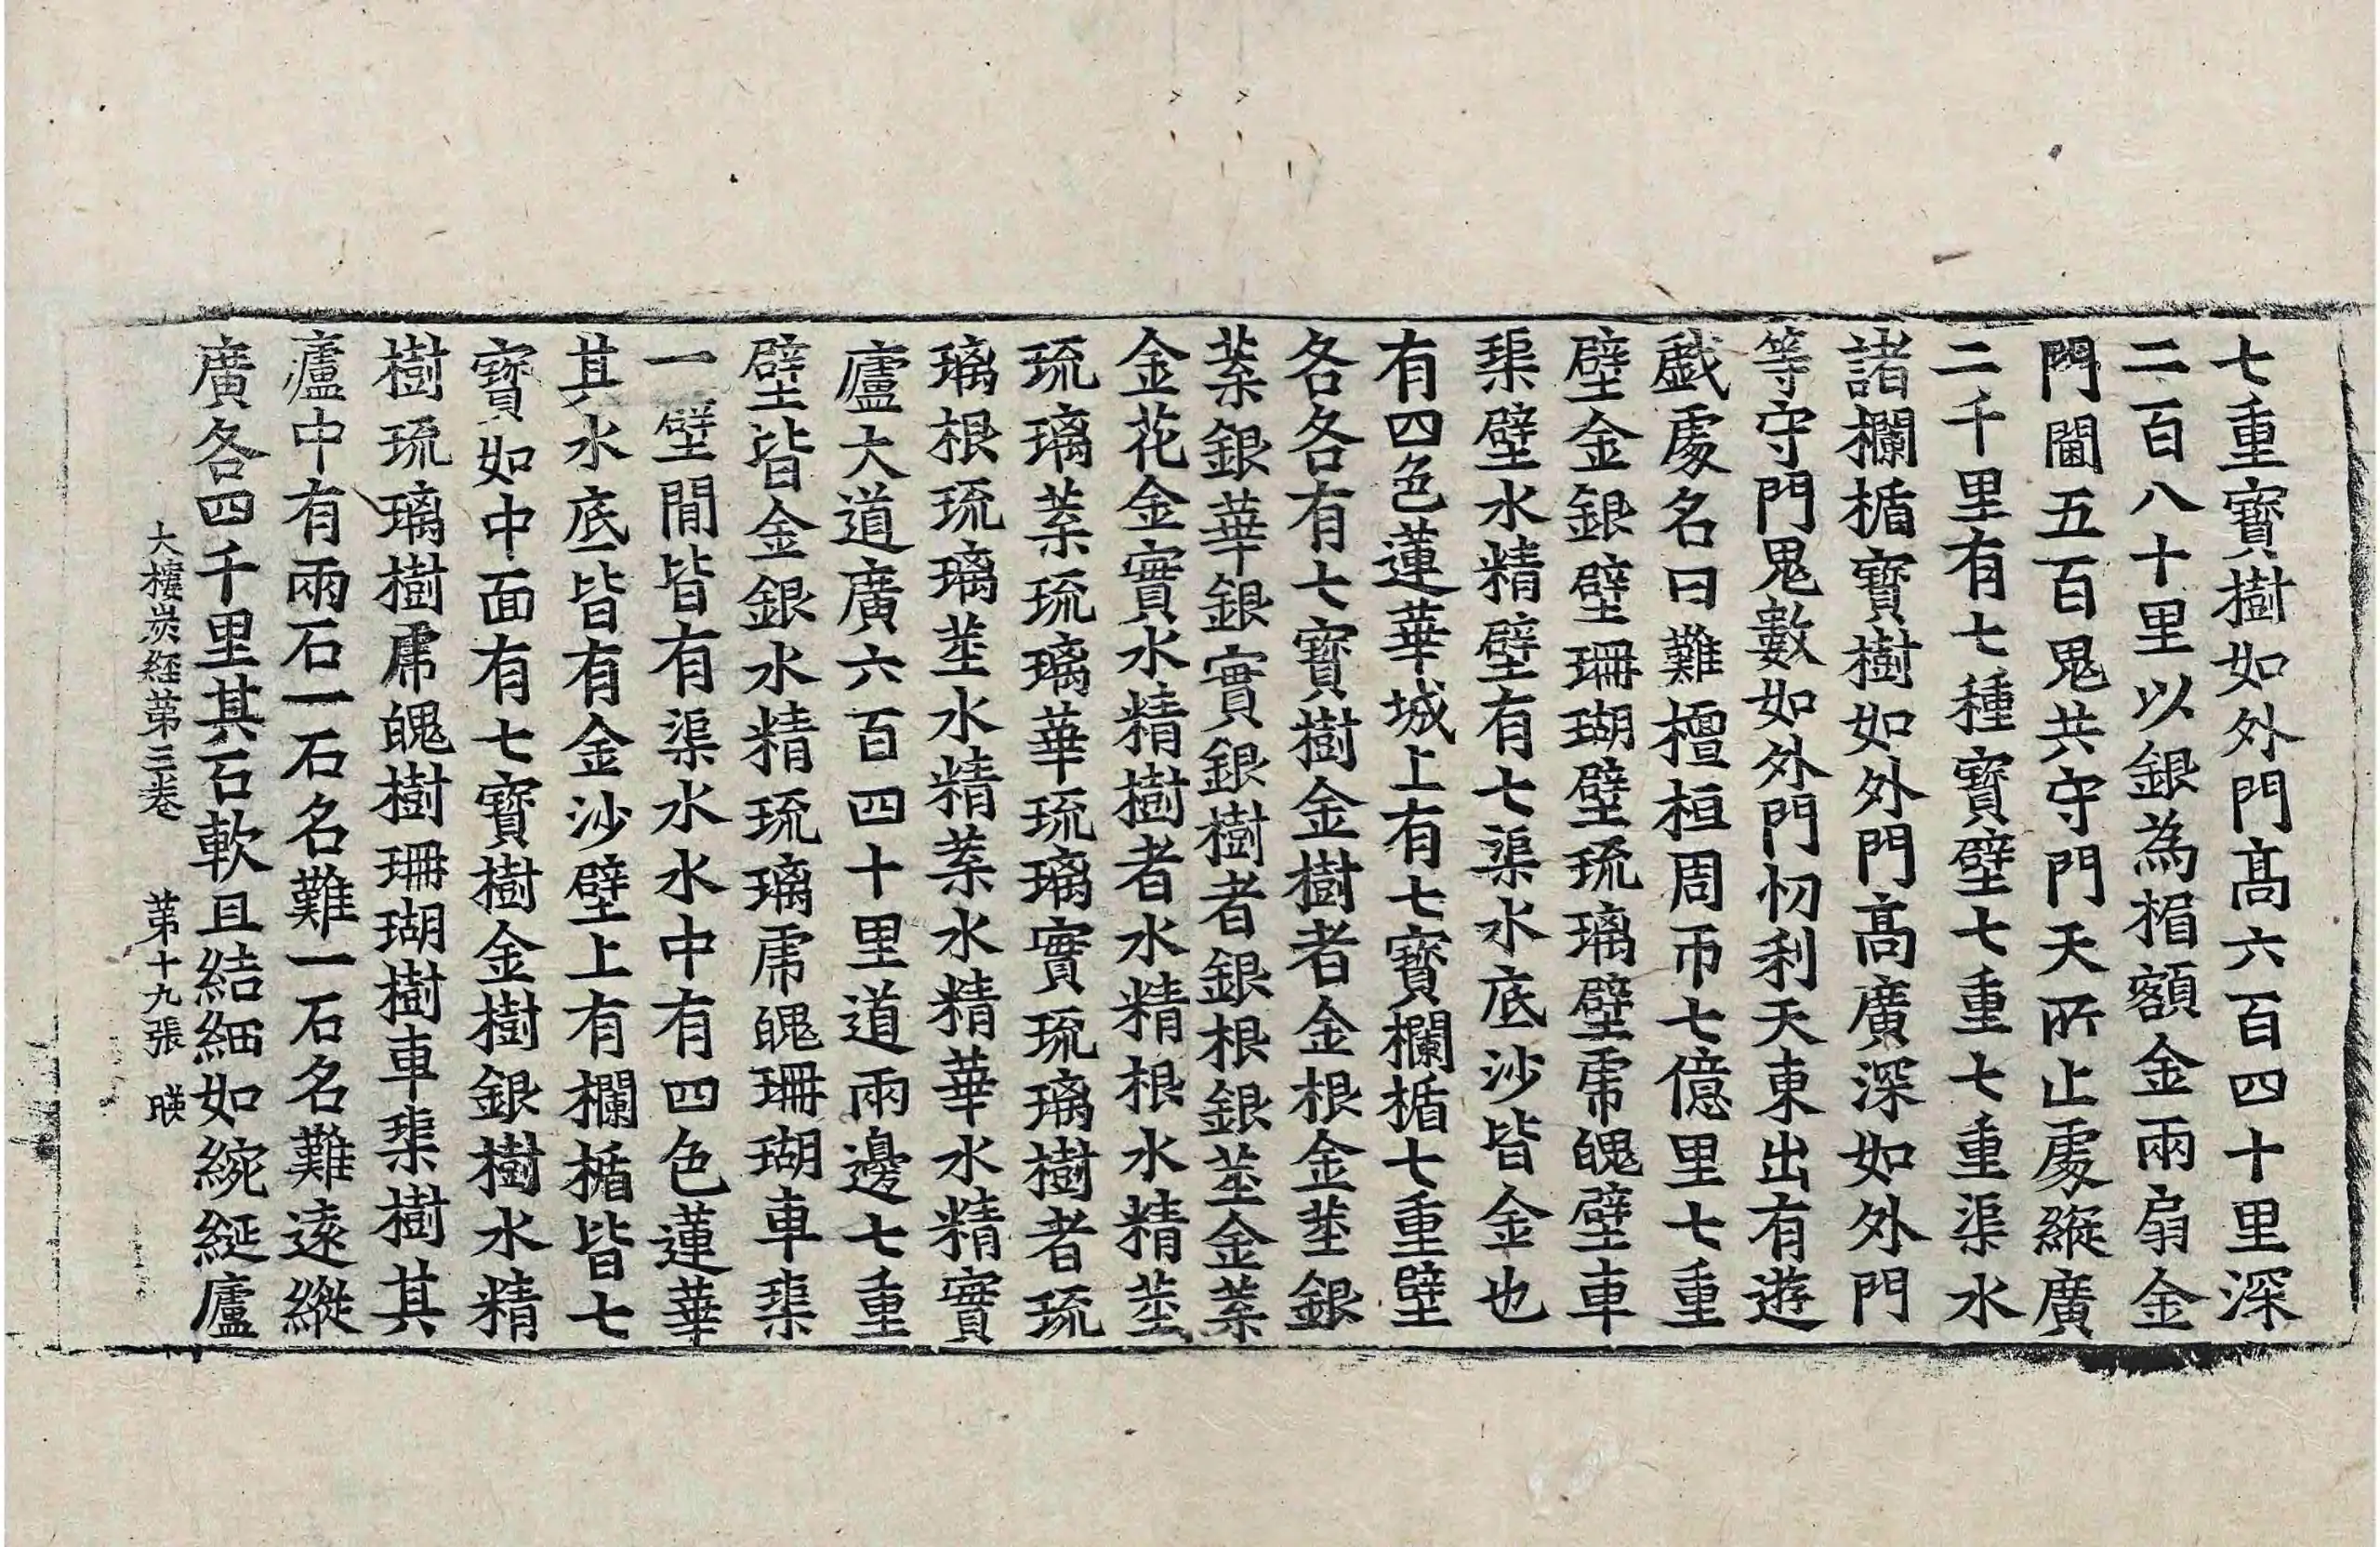 七重寶樹如外門髙六百四十里深
二百八十里以銀為楣額金兩扇金
門閫五百鬼共守門天所止處縱廣
二千里有七種寶壁七重七重渠水
諸欄楯寶樹如外門髙廣深如外門
等守門鬼數如外門忉利天東出有遊
戱處名曰難檀桓周帀七億里七重
壁金銀壁珊瑚壁琉璃壁虎魄壁車
璖壁水精壁有七渠水底沙皆金也
有四色蓮華城上有七寳欄楯七重壁
各各有七寶樹金樹者金根金莖銀
葉銀華銀實銀樹者銀根銀莖金葉
金花金實水精樹者水精根水精莖
琉璃葉琉璃華琉璃實琉璃樹者琉
璃根琉璃莖水精葉水精華水精實
廬大道廣六百四十里道兩邊七重
壁皆金銀水精琉璃虎魄珊瑚車璖
一壁間皆有渠水水中有四色蓮華
其水底皆有金沙壁上有欄楯皆七
寶如中面有七寶樹金樹銀樹水精
樹琉璃樹虎魄樹珊瑚樹車璖樹其
廬中有兩石一石名難一石名難遠縱
廣各四千里其石軟且結細如綩綖廬
大樓炭経苐三巻 苐十九張 暎